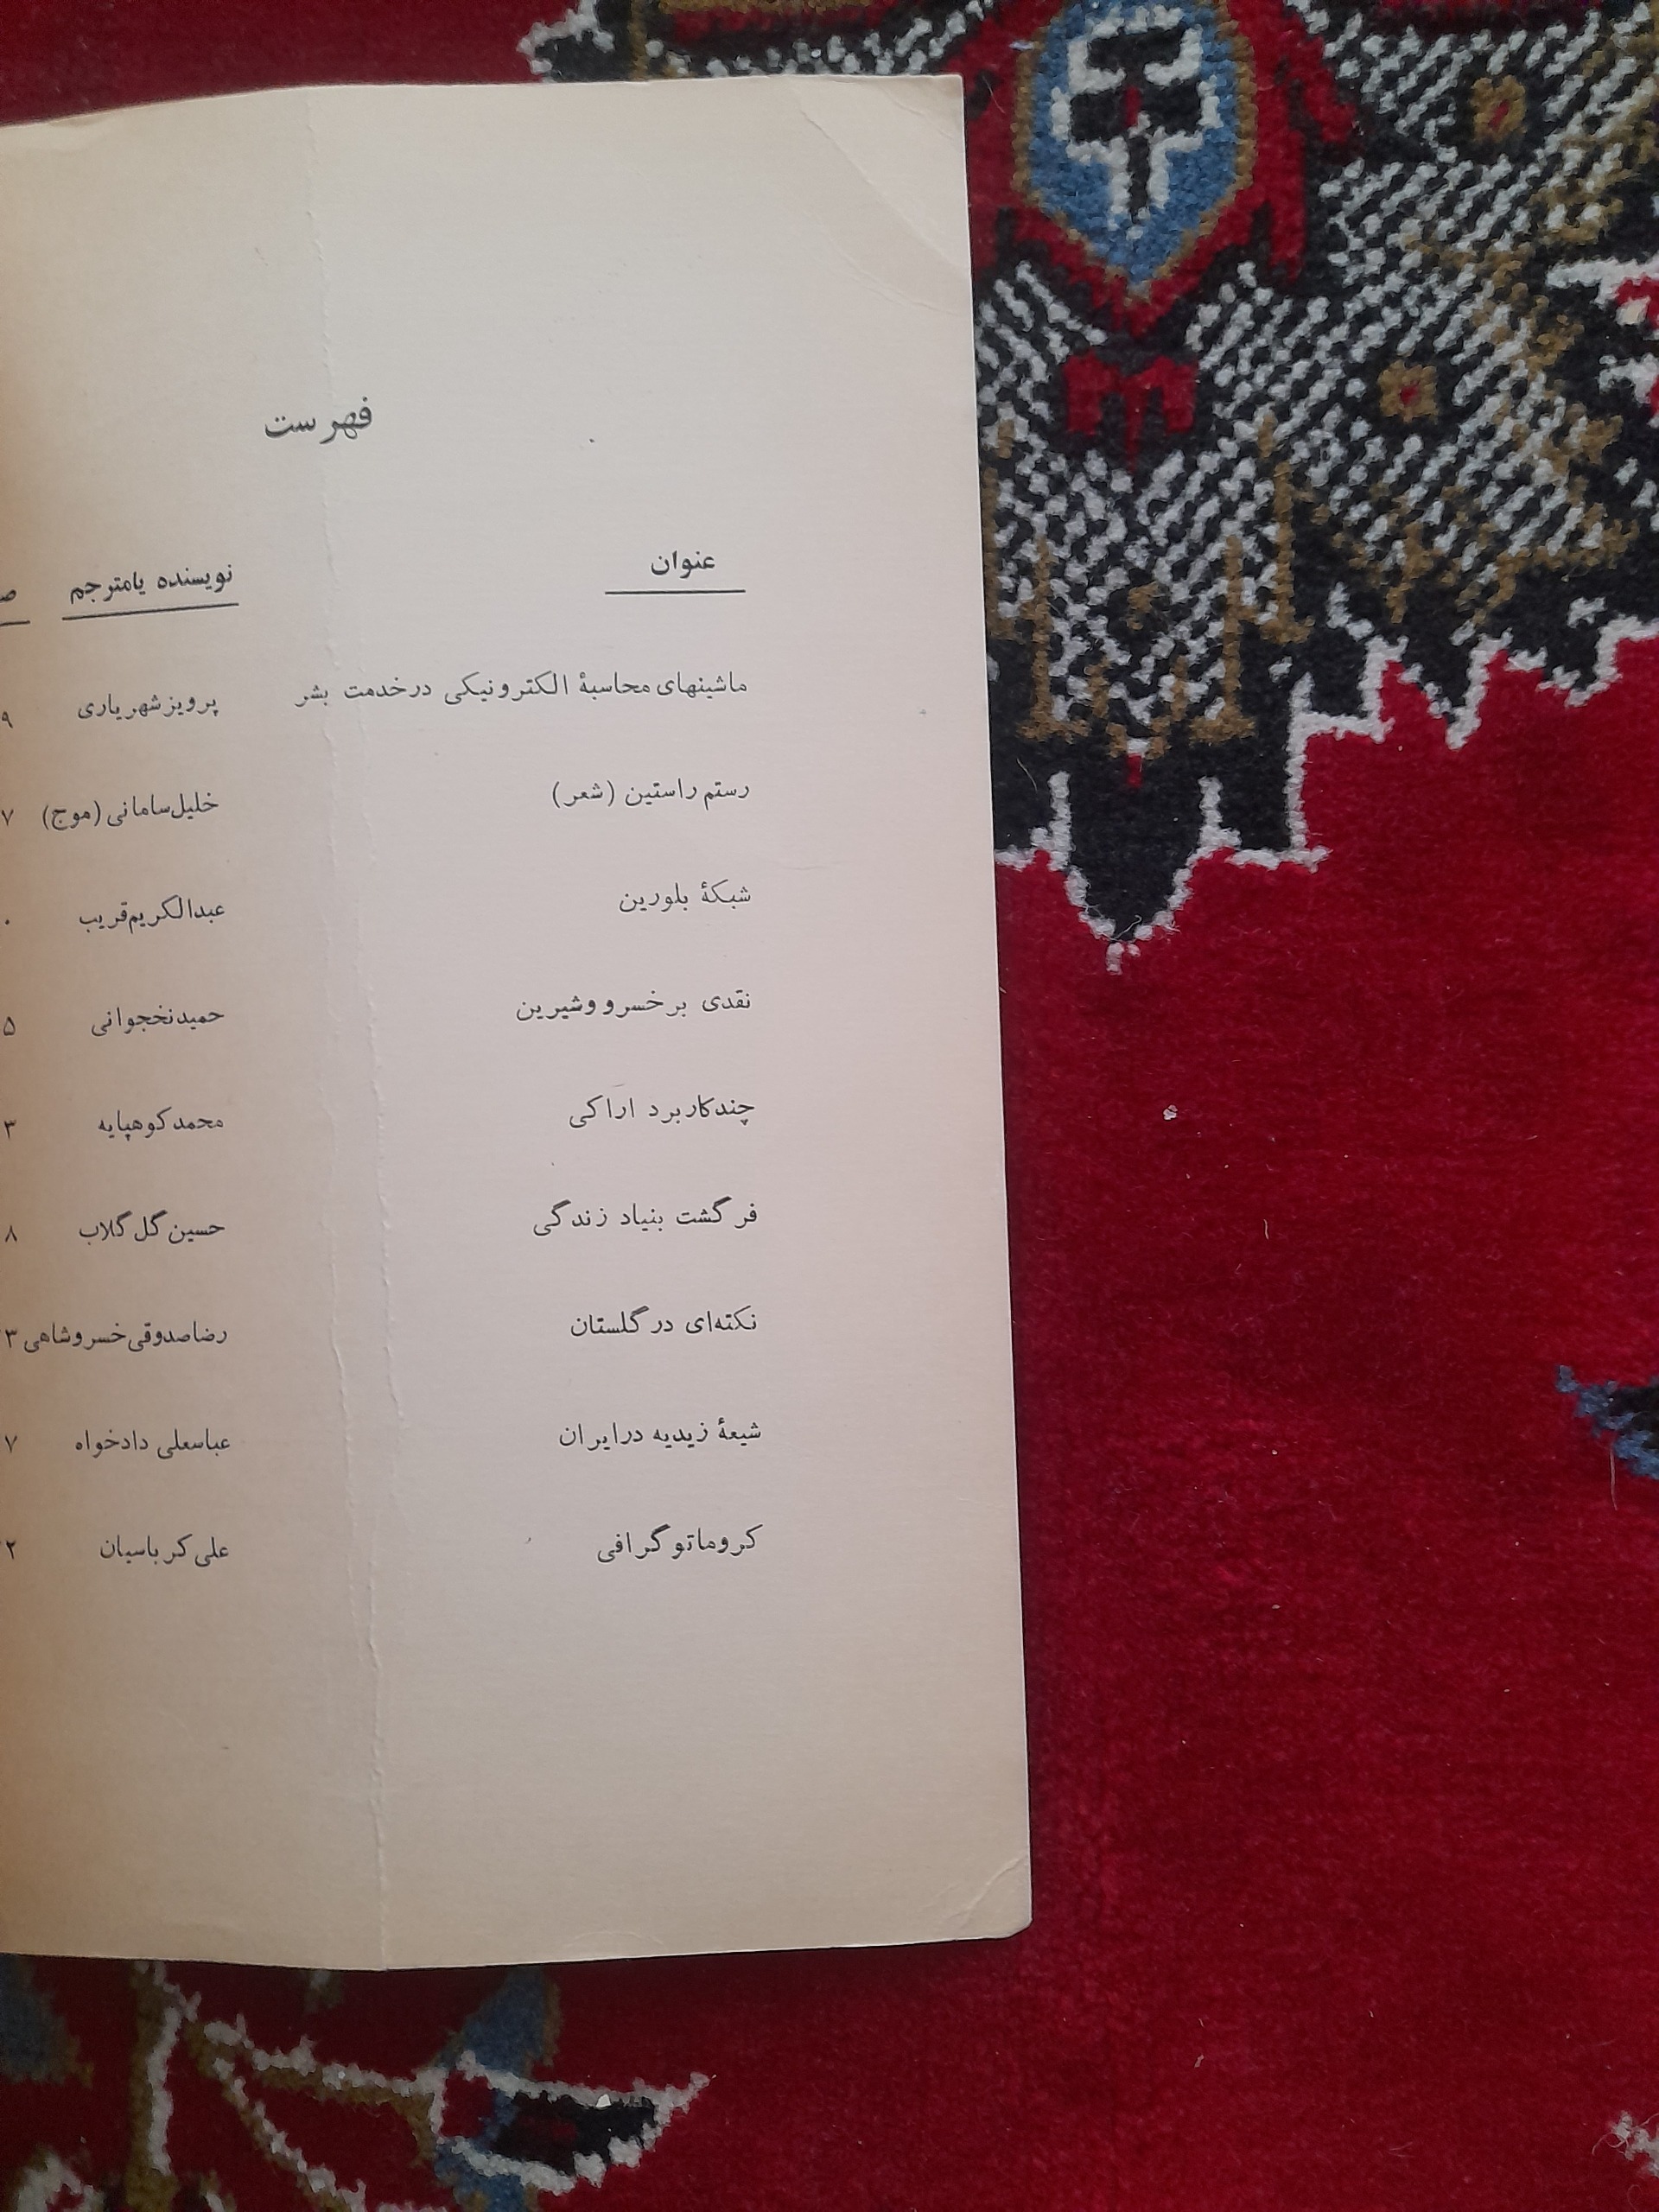 فهرست
عنوان نویسنده یا مترجم
ماشینهای محاسبهٔ الکترونیکی در خدمت بشر پرویز شهریاری ۹
رستم راستین (شعر) خلیل سامانی (موج) ۷
شبکهٔ بلورین عبدالکریم قریب ۰
نقدی بر خسرو و شیرین حمید نخجوانی ۵
چند کاربرد اراکی محمد کوهپایه ۳
فرگشت بنیاد زندگی حسین گل گلاب ۸
نکته‌ای در گلستان رضا صدوقی خسروشاهی ۳
شیعهٔ زیدیه در ایران عباسعلی دادخواه ۷
کروماتوگرافی علی کرباسیان ۲